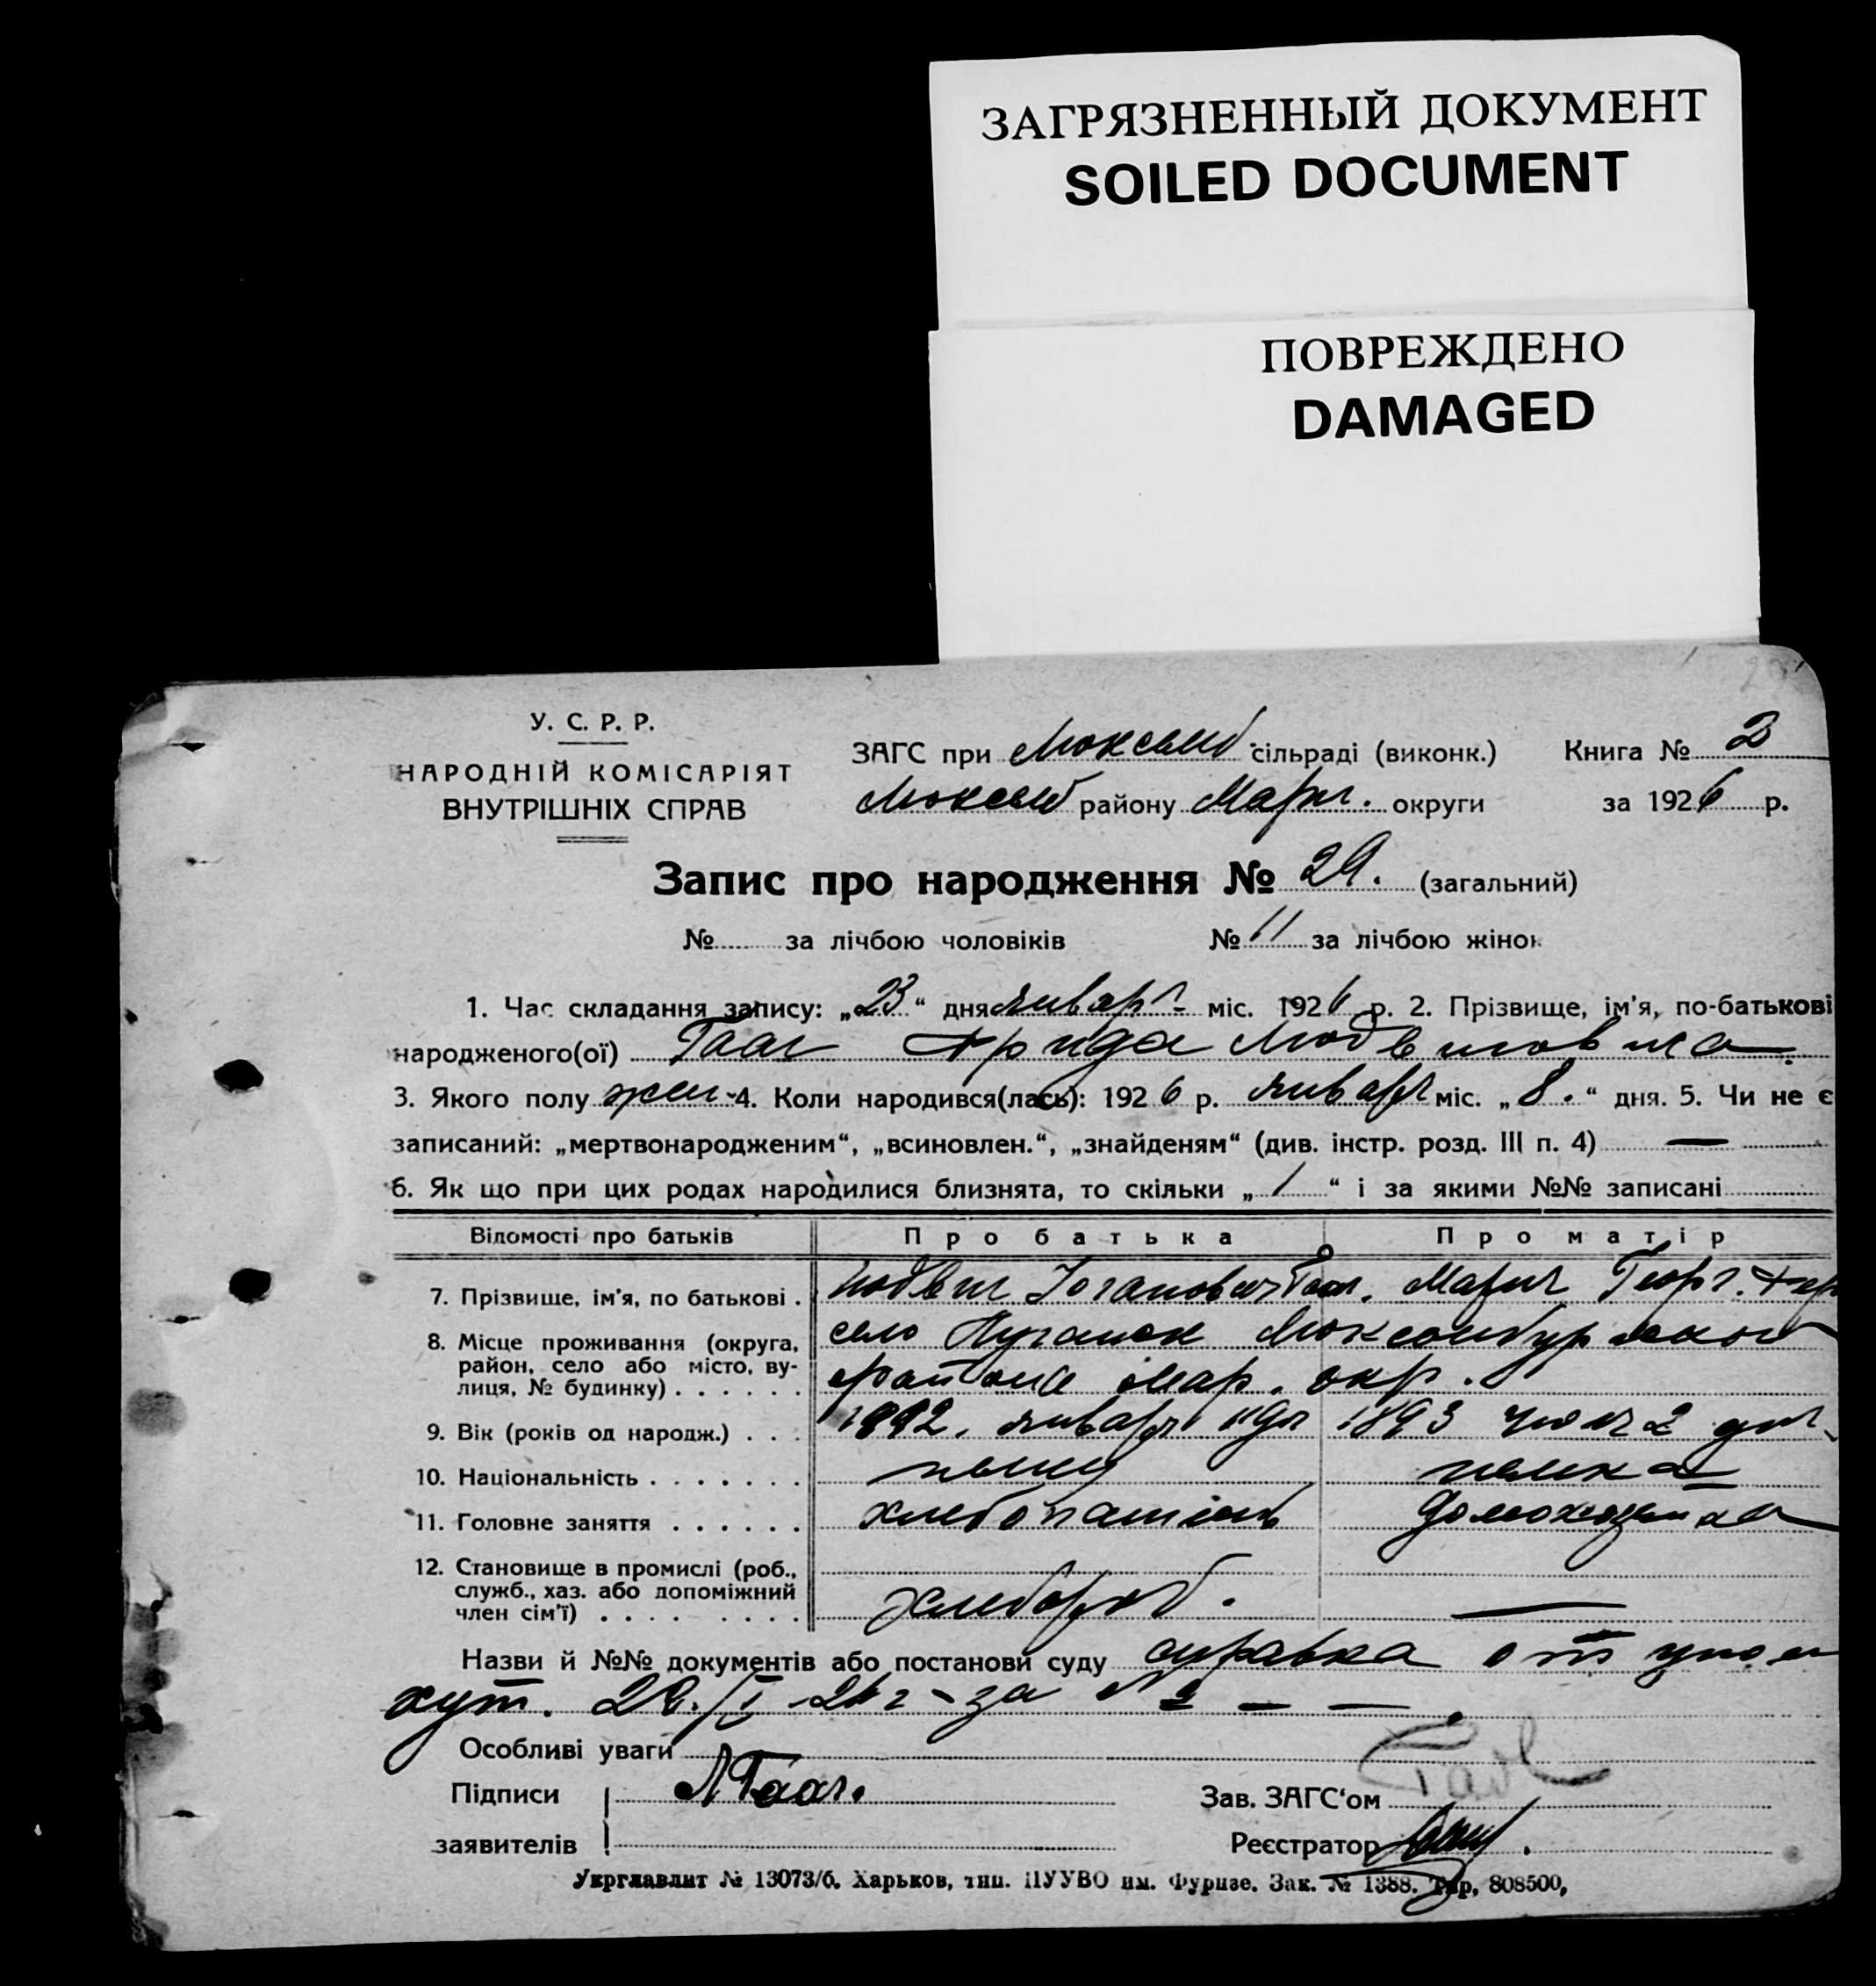 ЗАГРЯЗНЕННЫЙ ДОКУМЕНТ
SOILED DOCUMENT
ПОВРЕЖДЕНО
DAMAGED
У. С. Р. Р.
НАРОДНІЙ КОМІСАРІЯТ
ВНУТРІШНІХ СПРАВ
ЗАГС при Люксемб сільраді (виконк.) Книга № 2
Люксемб району Марит. округи за 1926 р.
Запис про народження № 29. (загальний)
№ за лічбою чоловіків № 11 за лічбою жінок
1. Час складання запису: „23“ дня января міс. 1926 р. 2. Прізвище, ім'я, по-батькові
народженого(ої) Гааг Фрида Людвиговна.
3. Якого полу жен 4. Коли народився(лась): 1926 р. января міс. „8.“ дня. 5. Чи не є
записаний: „мертвонародженим“, „всиновлен.“, „знайденям“ (див. інстр. розд. III п. 4) —
6. Як що при цих родах народилися близнята, то скільки „1“ і за якими №№ записані
Відомості про батьків Про батька Про матір
7. Прізвище, ім'я, по батькові . Людвиг Иоганович Гааг. Мария Георг.
8. Місце проживання (округа, район, село або місто, вулиця, № будинку) . . . . . . село Люксембургского
района Мар. окр.
9. Вік (років од народж.) . . . 1892. января 1893 2 дня
10. Національність . . . . . . . немец немка
11. Головне заняття . . . . . . хлебопашець домохозяйка
12. Становище в промислі (роб., служб., хаз. або допоміжний член сім'ї) . . . . . . . . хлебороб. —
Назви й №№ документів або постанови суду справка от упол
хут. 26г за № — —.
Особливі уваги
Підписи Л Гааг. Зав. ЗАГС'ом Гааг
заявителів Реєстратор
Укрглавлит № 13073/б. Харьков, тип. ПУУВО им. Фрунзе. Зак. № 1388. Тир. 808500,